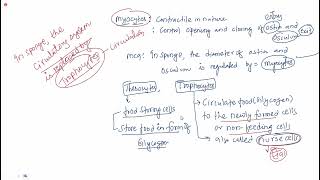 In sponge, the
Circulatory system
is replaced by
Trophocytes
Circulation
myocytes: Contractile in nature
: Control opening and closing of ostia and
osculum
mcq: In sponge, the diameter of ostia
and osculum is regulated by = myocytes
Thesocytes
food storing cells
Store food in form of
Glycogen
Trophocytes
Circulate food (Glycogen)
to the newly formed cells
or non-feeding cells
also called nurse cells